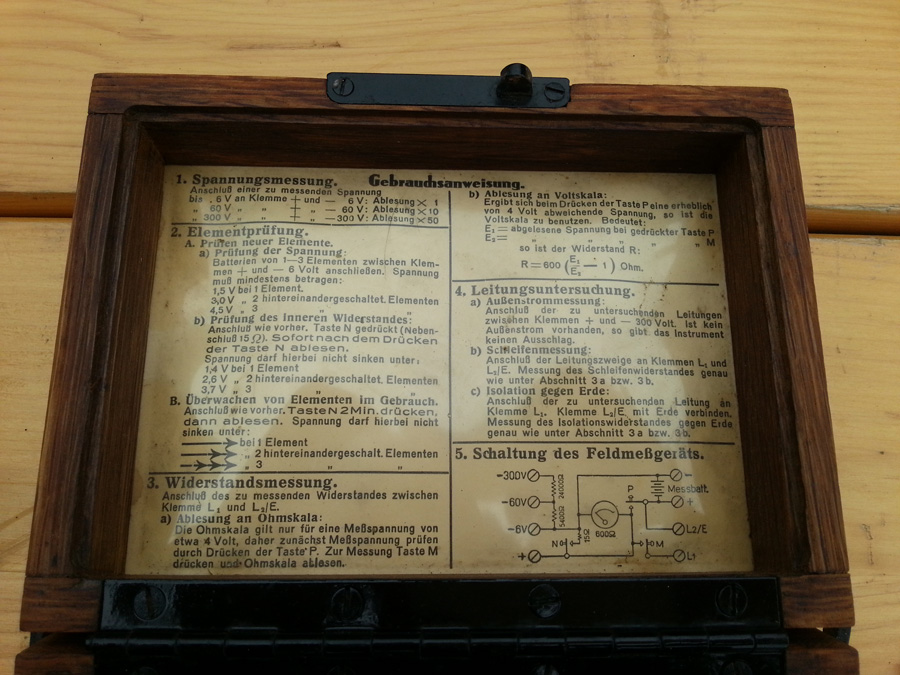 Gebrauchsanweisung.
1. Spannungsmessung.
Anschluß einer zu messenden Spannung
bis 6 V an Klemme + und — 6 V: Ablesung × 1
„ 60 V „ „ + „ — 60 V: Ablesung × 10
„ 300 V „ „ + „ — 300 V: Ablesung × 50
2. Elementprüfung.
A. Prüfen neuer Elemente.
a) Prüfung der Spannung:
Batterien von 1—3 Elementen zwischen Klem-
men + und — 6 Volt anschließen. Spannung
muß mindestens betragen:
1,5 V bei 1 Element.
3,0 V „ 2 hintereinandergeschaltet. Elementen
4,5 V „ 3 „ „
b) Prüfung des Inneren Widerstandes:
Anschluß wie vorher. Taste N gedrückt (Neben-
schluß 15 Ω). Sofort nach dem Drücken
der Taste N ablesen.
Spannung darf hierbei nicht sinken unter:
1,4 V bei 1 Element
2,6 V „ 2 hintereinandergeschaltet. Elementen
3,7 V „ 3 „ „
B. Überwachen von Elementen im Gebrauch.
Anschluß wie vorher. Taste N 2 Min. drücken,
dann ablesen. Spannung darf hierbei nicht
sinken unter:
bei 1 Element
„ 2 hintereinandergeschalt. Elementen
„ 3 „ „
3. Widerstandsmessung.
Anschluß des zu messenden Widerstandes zwischen
Klemme L₁ und L₂/E.
a) Ablesung an Ohmskala:
Die Ohmskala gilt nur für eine Meßspannung von
etwa 4 Volt, daher zunächst Meßspannung prüfen
durch Drücken der Taste P. Zur Messung Taste M
drücken und Ohmskala ablesen.
b) Ablesung an Voltskala:
Ergibt sich beim Drücken der Taste P eine erheblich
von 4 Volt abweichende Spannung, so ist die
Voltskala zu benutzen. Bedeutet:
E₁ = abgelesene Spannung bei gedrückter Taste P
E₂ = „ „ „ „ „ M
so ist der Widerstand R:
R = 600 (E₁/E₂ — 1) Ohm.
4. Leitungsuntersuchung.
a) Außenstrommessung:
Anschluß der zu untersuchenden Leitungen
zwischen Klemmen + und — 300 Volt. Ist kein
Außenstrom vorhanden, so gibt das Instrument
keinen Ausschlag.
b) Schleifenmessung:
Anschluß der Leitungszweige an Klemmen L₁ und
L₂/E. Messung des Schleifenwiderstandes genau
wie unter Abschnitt 3 a bzw. 3 b.
c) Isolation gegen Erde:
Anschluß der zu untersuchenden Leitung an
Klemme L₁. Klemme L₂/E mit Erde verbinden.
Messung des Isolationswiderstandes gegen Erde
genau wie unter Abschnitt 3 a bzw. 3 b.
5. Schaltung des Feldmeßgeräts.
−300V 2400Ω −
Messbatt.
−60V P +
5400Ω
−6V 15Ω 600Ω L2/E
+ N M L1